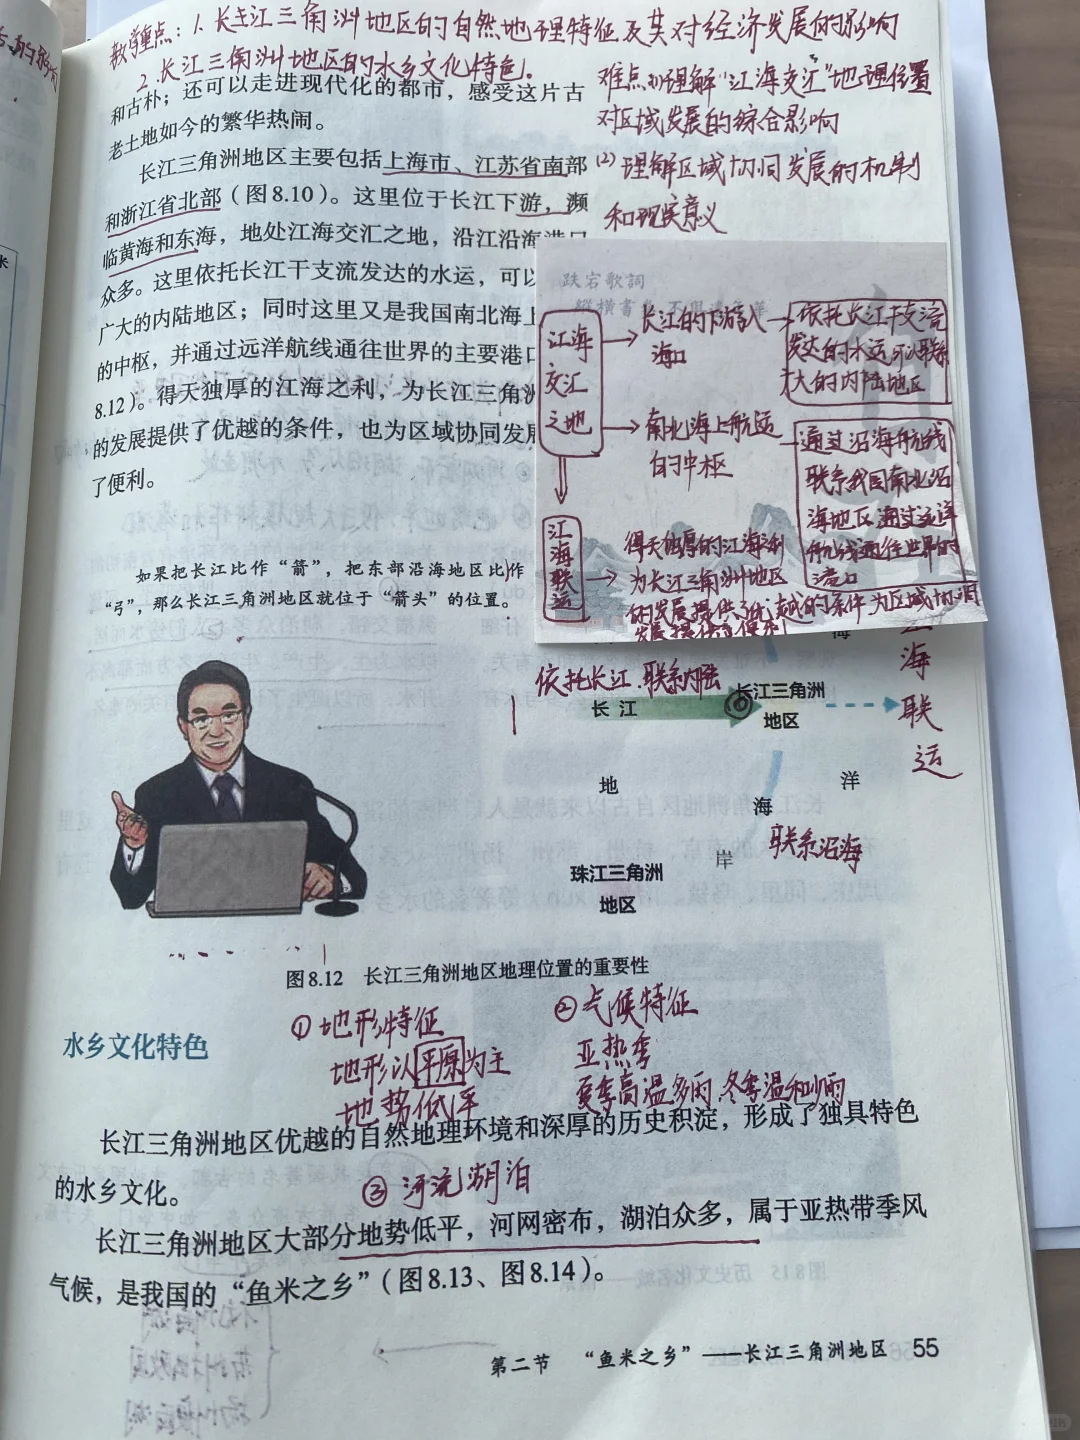 教学重点：1.长江三角洲地区的自然地理特征及其对经济发展的影响
2.长江三角洲地区的水乡文化特色.
难点(1)理解"江海交汇"地理位置
对区域发展的综合影响
(2)理解区域协同发展的机制
和现实意义
和古朴；还可以走进现代化的都市，感受这片古
老土地如今的繁华热闹。
长江三角洲地区主要包括上海市、江苏省南部
和浙江省北部（图8.10）。这里位于长江下游，濒
临黄海和东海，地处江海交汇之地，沿江沿海港口
众多。这里依托长江干支流发达的水运，可以
广大的内陆地区；同时这里又是我国南北海上
的中枢，并通过远洋航线通往世界的主要港口
8.12）。得天独厚的江海之利，为长江三角洲
的发展提供了优越的条件，也为区域协同发展
了便利。
跌宕歌詞
江海
交汇
之地
长江的下游入
海口
依托长江干支流
发达的水运可以联系
大的内陆地区
南北海上航运
的中枢
通过沿海航线
联系我国南北沿
海地区，通过远洋
航线通往世界的
港口
江
海
联
运
得天独厚的江海之利
为长江三角洲地区
的发展提供了优越的条件为区域协调
发展提供了便利
如果把长江比作“箭”，把东部沿海地区比作
“弓”，那么长江三角洲地区就位于“箭头”的位置。
海
海
联
运
依托长江.联系内陆
长 江
长江三角洲
地区
地
洋
海
联系沿海
岸
珠江三角洲
地区
图8.12 长江三角洲地区地理位置的重要性
水乡文化特色
①地形特征
地形以平原为主
地势低平
②气候特征
亚热季
夏季高温多雨,冬季温和少雨
长江三角洲地区优越的自然地理环境和深厚的历史积淀，形成了独具特色
的水乡文化。
③河流湖泊
长江三角洲地区大部分地势低平，河网密布，湖泊众多，属于亚热带季风
气候，是我国的“鱼米之乡”（图8.13、图8.14）。
第二节 “鱼米之乡”——长江三角洲地区 55